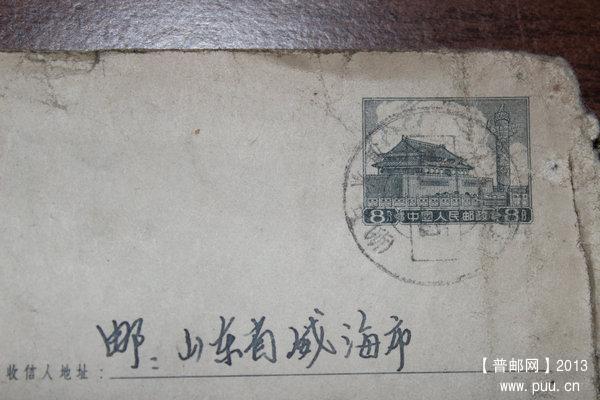 8分 中国人民邮政 8分
邮：山东省威海市
收信人地址：
【普邮网】2013
www.puu.cn